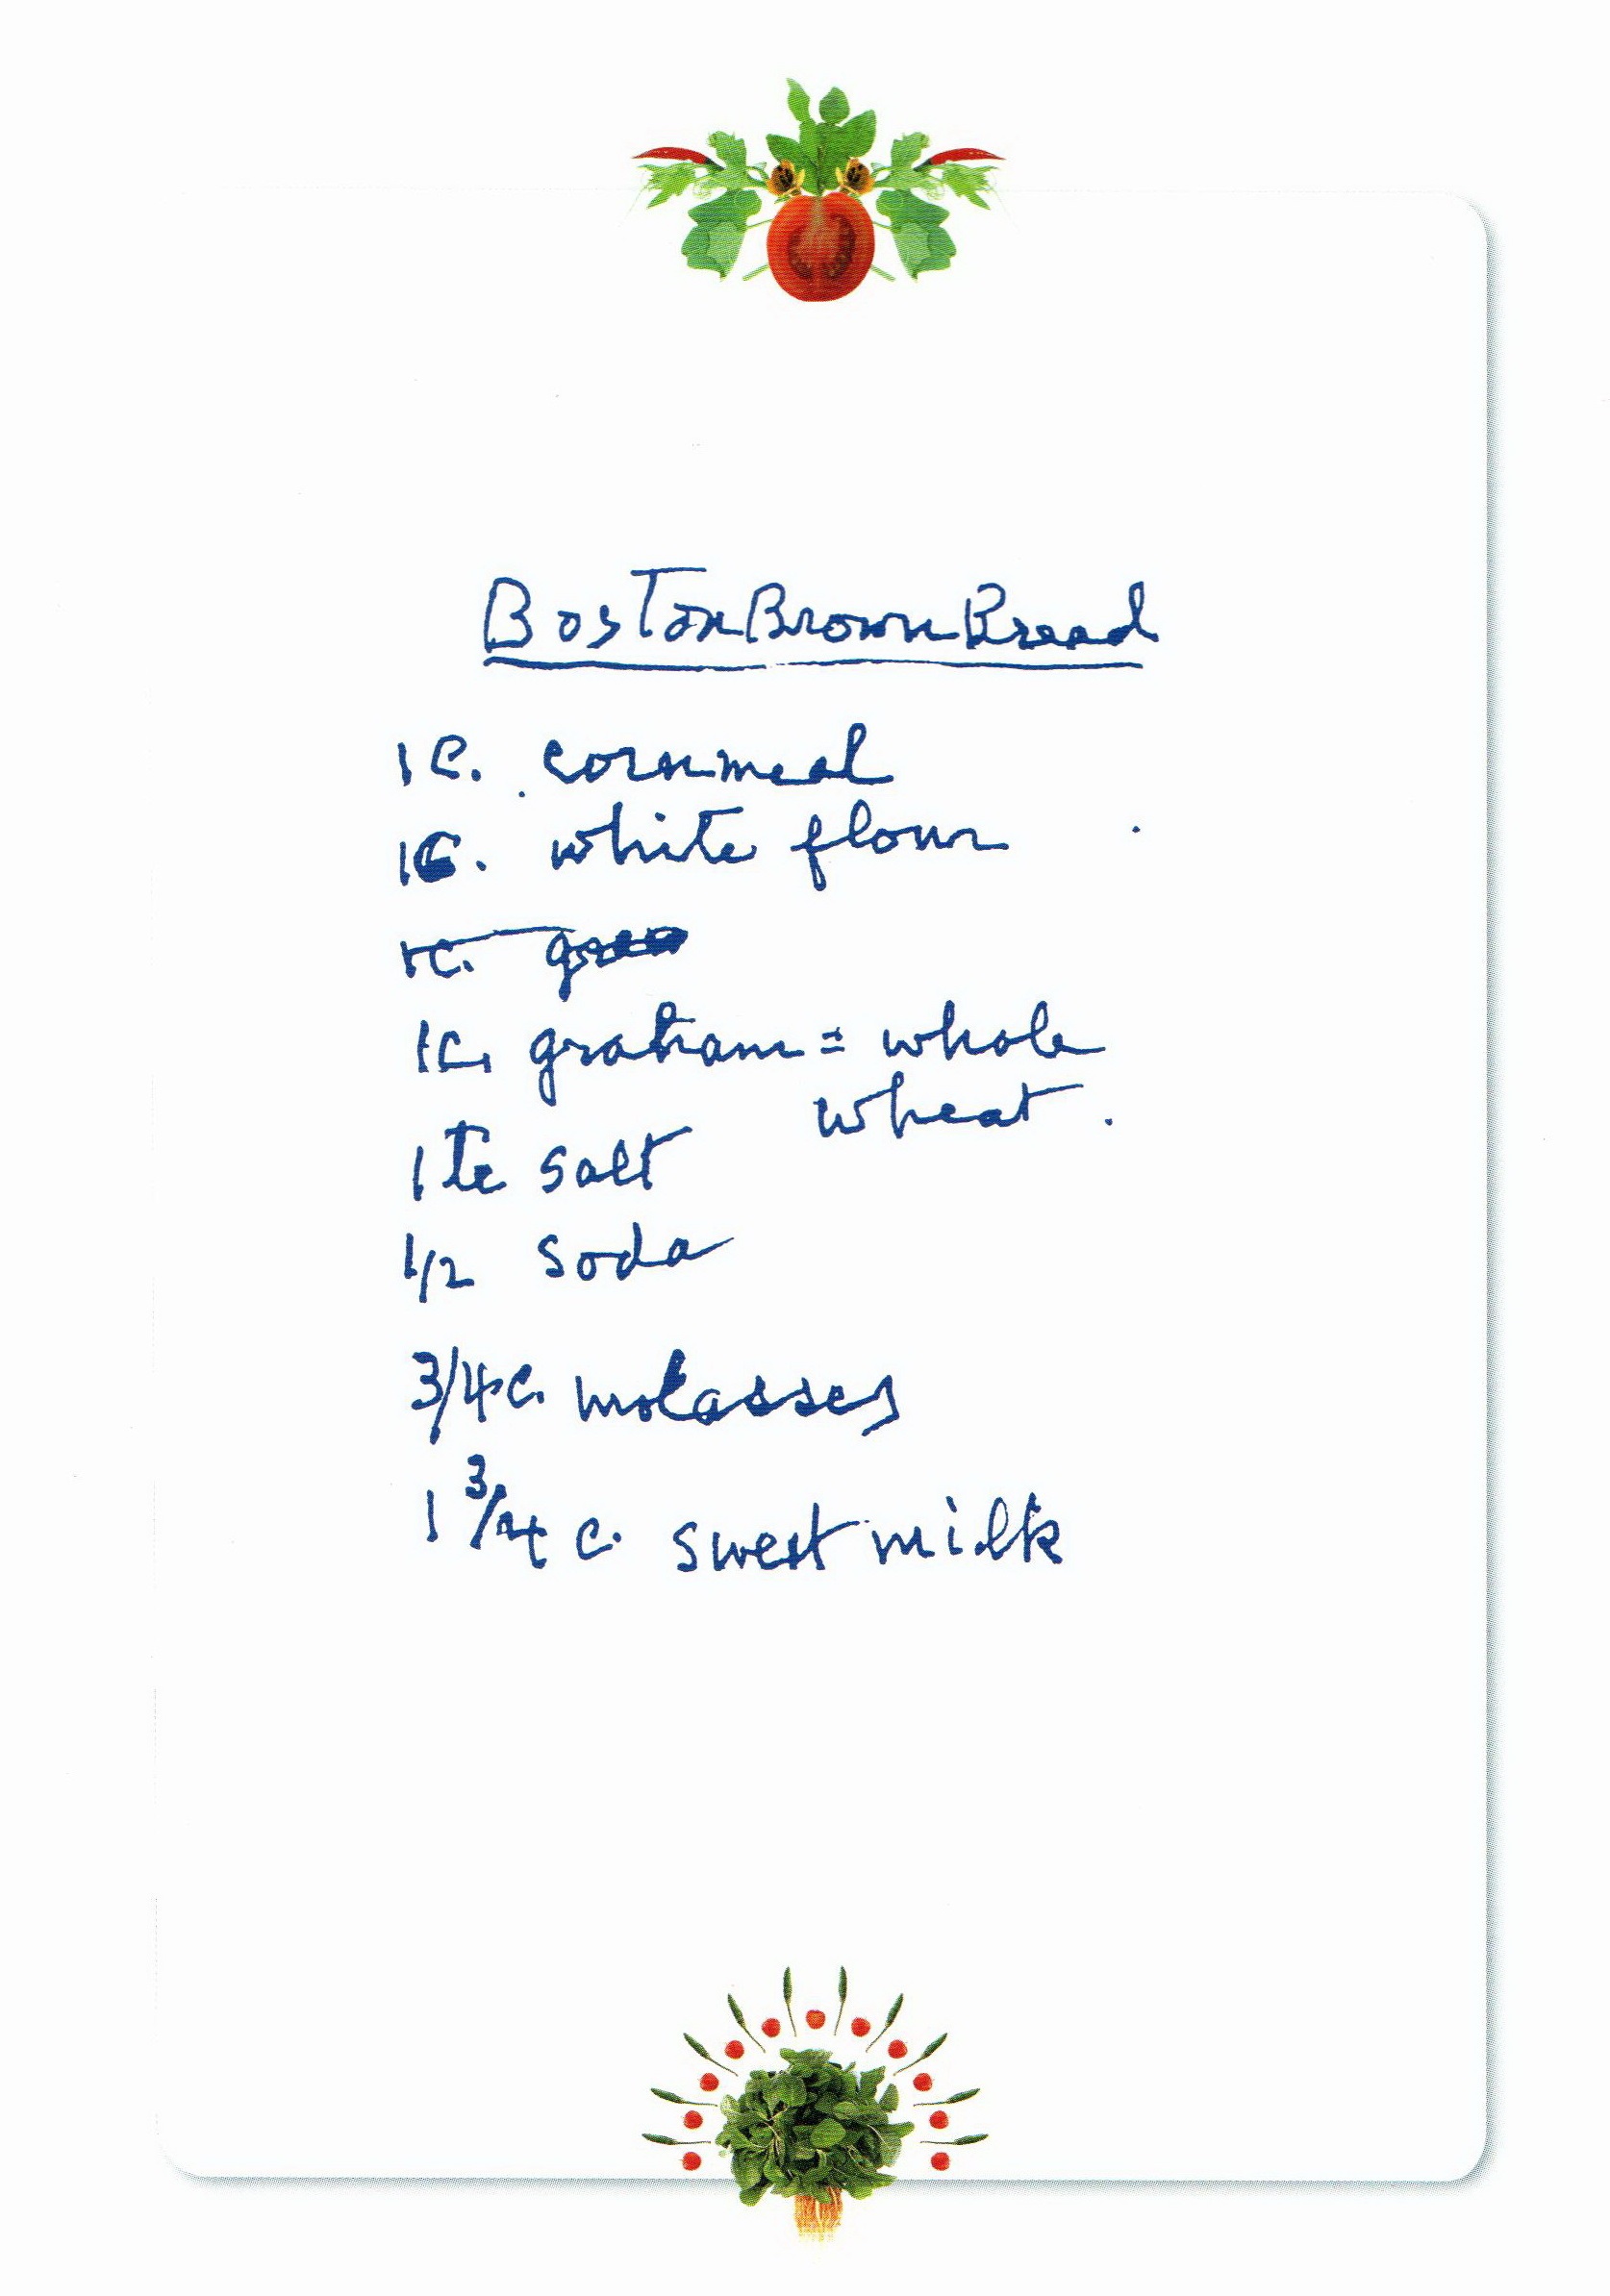 Boston Brown Bread
1 C. cornmeal
1 C. white flour
1 C.
1 C. graham = whole
wheat.
1 te salt
1/2 soda
3/4 c. molasses
1 3/4 c. sweet milk